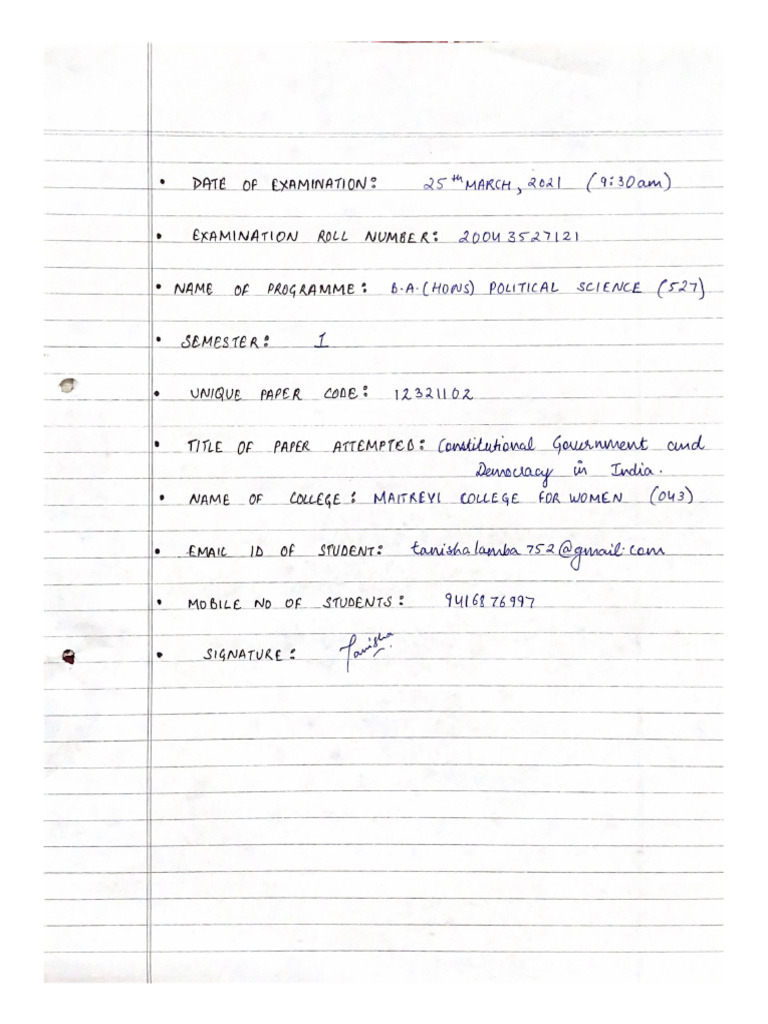 • DATE OF EXAMINATION: 25th MARCH, 2021 (9:30am)
• EXAMINATION ROLL NUMBER: 20043527121
• NAME OF PROGRAMME: B.A.(HONS) POLITICAL SCIENCE (527)
• SEMESTER: I
• UNIQUE PAPER CODE: 12321102
• TITLE OF PAPER ATTEMPTED: Constitutional Government and
Democracy in India.
• NAME OF COLLEGE: MAITREYI COLLEGE FOR WOMEN (043)
• EMAIL ID OF STUDENT: tanishalamba752@gmail.com
• MOBILE NO OF STUDENTS: 9416876997
• SIGNATURE: Tanisha